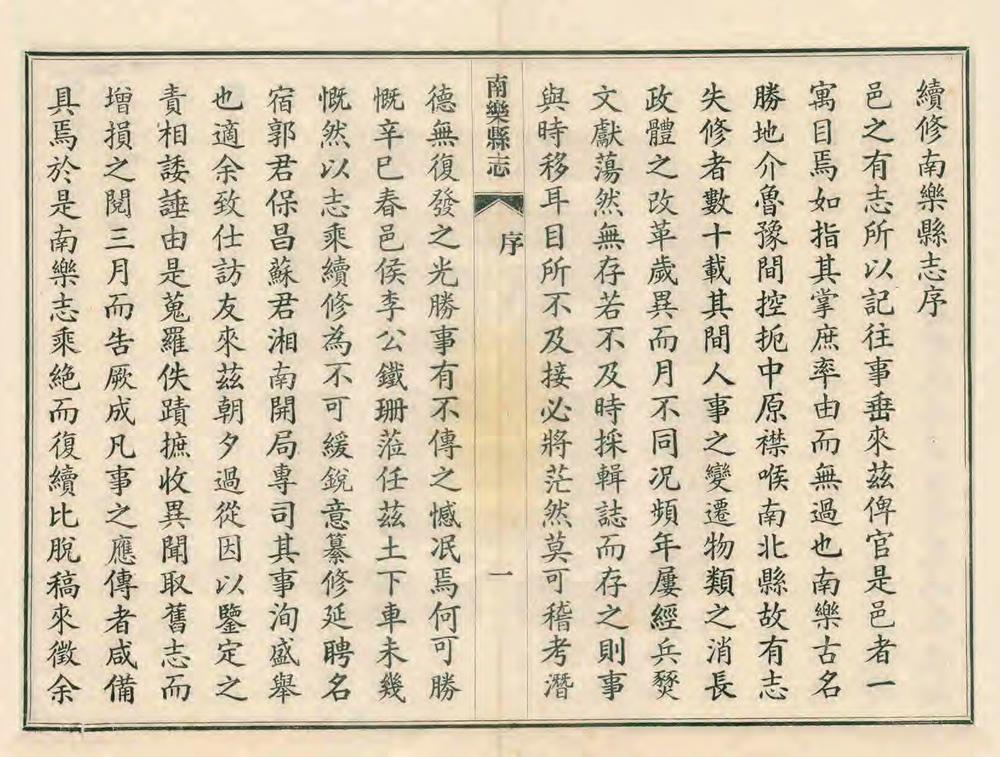 續修南樂縣志序
邑之有志所以記往事垂來茲俾官是邑者一
寓目焉如指其掌庶率由而無過也南樂古名
勝地介魯豫間控扼中原襟喉南北縣故有志
失修者數十載其間人事之變遷物類之消長
政體之改革歲異而月不同況頻年屢經兵燹
文獻蕩然無存若不及時採輯誌而存之則事
與時移耳目所不及接必將茫然莫可稽考潛
南樂縣志
序
一
德無復發之光勝事有不傳之憾泯焉何可勝
慨辛巳春邑侯李公鐵珊蒞任茲土下車未幾
慨然以志乘續修為不可緩銳意纂修延聘名
宿郭君保昌蘇君湘南開局專司其事洵盛舉
也適余致仕訪友來茲朝夕過從因以鑒定之
責相諉諈由是蒐羅佚蹟摭收異聞取舊志而
增損之閱三月而告厥成凡事之應傳者咸備
具焉於是南樂志乘絶而復續比脫稿來徵余